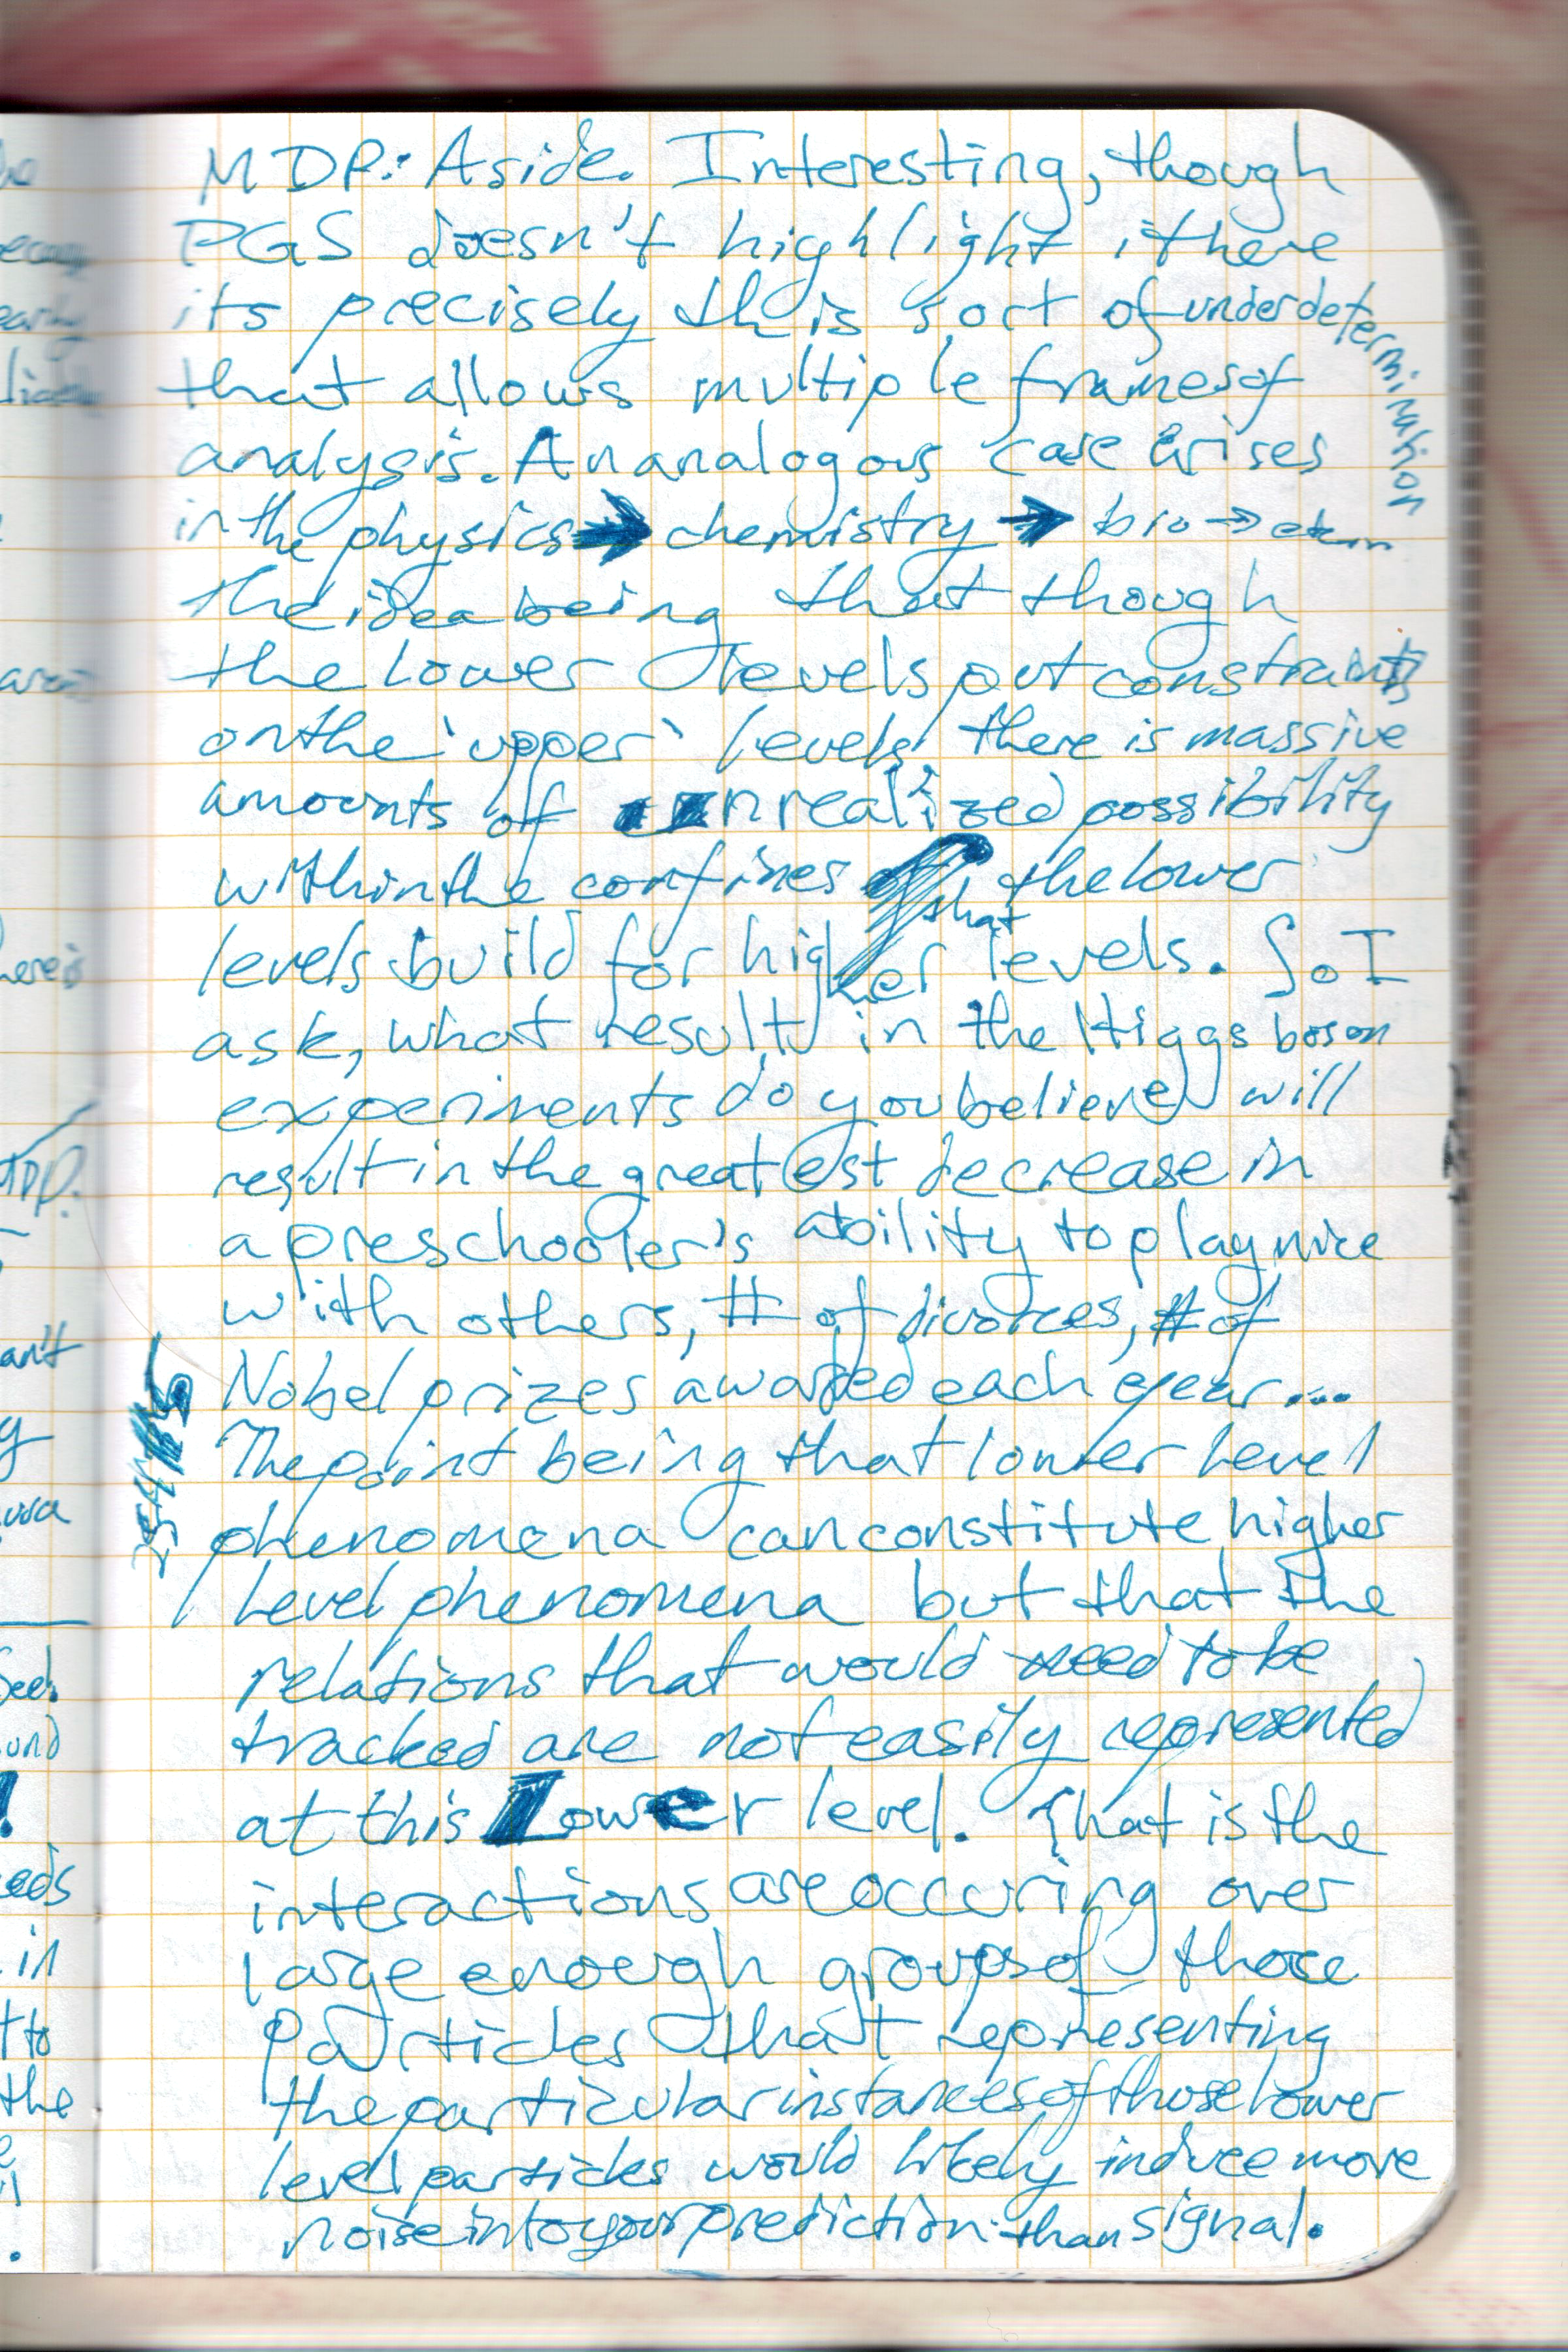 MDP: Aside. Interesting, though
PGS doesn't highlight it here
its precisely this sort of underdetermination
that allows multiple frames of
analysis. An analogous case arises
in the physics → chemistry → bio →
the idea being that though
the lower levels put constraints
on the 'upper' levels, there is massive
amounts of unrealized possibility
within the confines that the lower
levels build for higher levels. So I
ask, what results in the Higgs boson
experiments do you believe will
result in the greatest decrease in
a preschooler's ability to play nice
with others, # of divorces, # of
Nobel prizes awarded each year...
The point being that lower level
phenomena can constitute higher
level phenomena but that the
relations that would need to be
tracked are not easily represented
at this lower level. That is the
interactions are occuring over
large enough groups of those
particles that representing
the particular instances of those lower
level particles would likely induce more
noise into your prediction than signal.